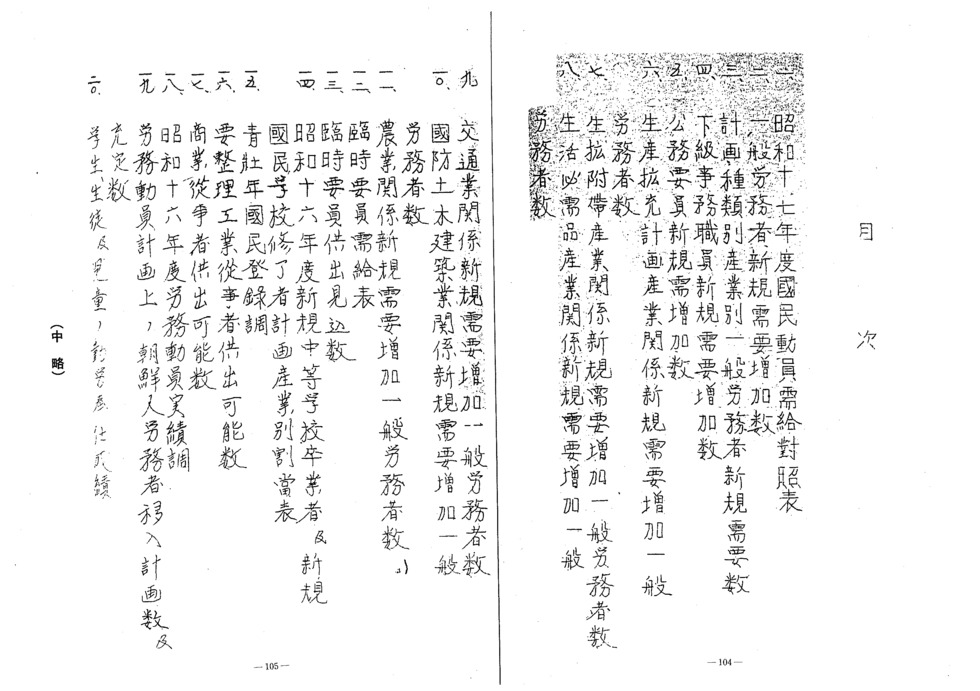 目次
一、昭和十七年度國民動員需給對照表
二、一般労務者新規需要増加数
三、計画種類別産業別一般労務者新規需要数
四、下級事務職員新規需要増加数
五、公務要員新規需増加数
六、生産拡充計画産業関係新規需要増加一般
労務者数
七、生拡附帯産業関係新規需要増加一般労務者数
八、生活必需品産業関係新規需要増加一般
労務者数
—104—
九、交通業関係新規需要増加一般労務者数
一〇、國防土木建築業関係新規需要増加一般
労務者数
一一、農業関係新規需要増加一般労務者数
一二、臨時要員需給表
一三、臨時要員供出見込数
一四、昭和十六年度新規中等学校卒業者及新規
國民学校修了者計画産業別割當表
一五、青壮年國民登録調
一六、要整理工業從事者供出可能数
一七、商業從事者供出可能数
一八、昭和十六年度労務動員実績調
一九、労務動員計画上ノ朝鮮人労務者移入計画数及
充足数
二〇、学生生徒及児童ノ勤労奉仕成績
(中略)
—105—